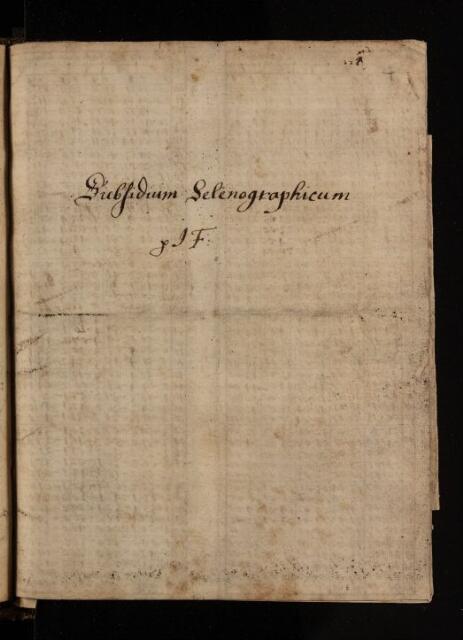 Subsidium Selenographicum
p I F.